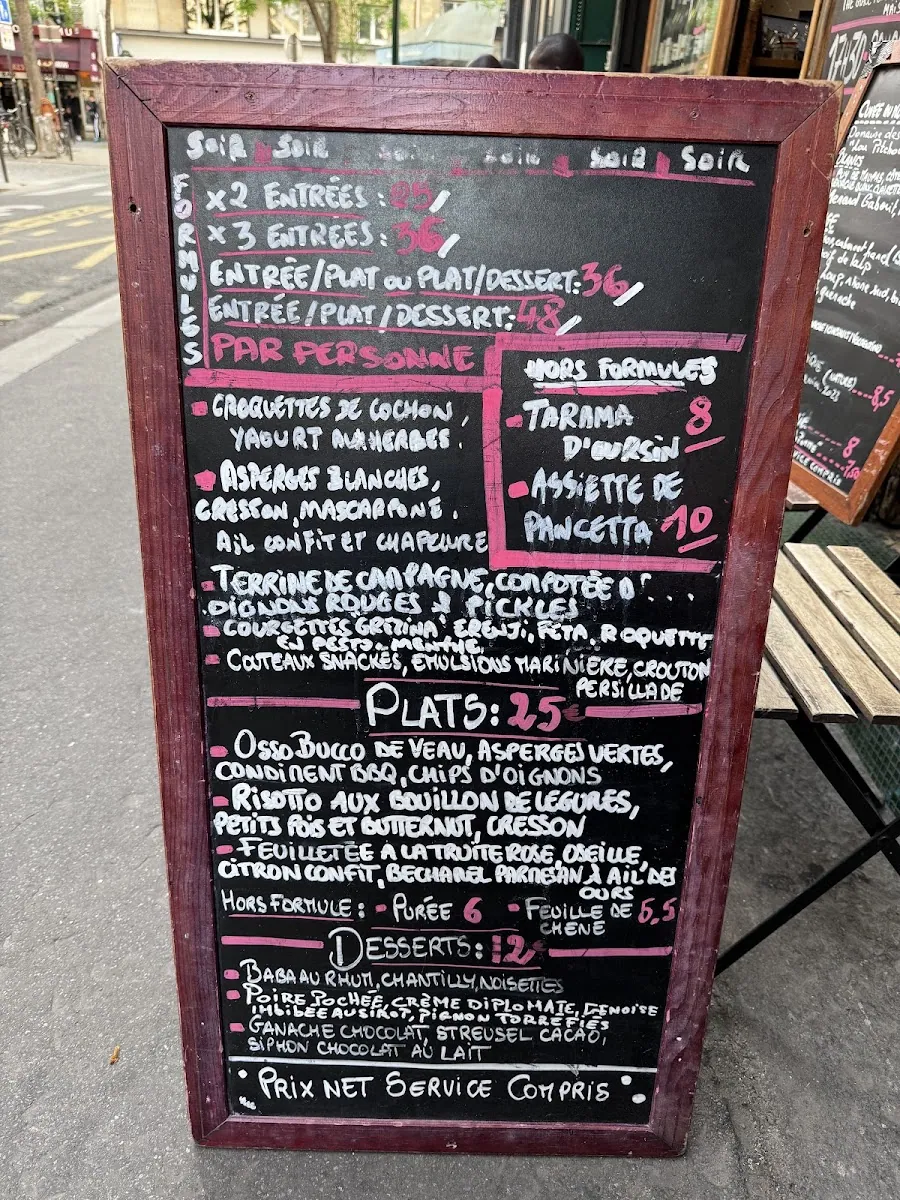 SOIR SOIR SOIR SOIR SOIR SOIR
FORMULES
x2 ENTRÉES : 25/
x3 ENTRÉES : 36/
ENTRÉE/PLAT OU PLAT/DESSERT: 36/
ENTRÉE/PLAT/DESSERT: 48/
PAR PERSONNE
HORS FORMULES
TARAMA 8
D'OURSIN
ASSIETTE DE
PANCETTA 10
CROQUETTES DE COCHON,
YAOURT AUX HERBES.
ASPERGES BLANCHES,
CRESSON, MASCARPONE,
AIL CONFIT ET CHAPELURE
TERRINE DE CAMPAGNE, COMPOTÉE D'....
OIGNONS ROUGES & PICKLES
COURGETTES GREZINA ERENJI, FETA, ROQUETTE
EN PESTO-MENTHE.
COUTEAUX SNACKÉS, EMULSIONS MARINIERE, CROUTON
PERSILLADE
PLATS: 25€
OSSO BUCCO DE VEAU, ASPERGES VERTES,
CONDIMENT BBQ, CHIPS D'OIGNONS
RISOTTO AUX BOUILLON DE LEGUMES,
PETITS POIS ET BUTTERNUT, CRESSON
FEUILLETÉE A LA TRUITE ROSE, OSEILLE,
CITRON CONFIT, BECHAMEL PARMESAN & AIL DES
OURS
HORS FORMULE: PURÉE 6 FEUILLE DE 5,5
CHENE
DESSERTS: 12€
BABA AU RHUM, CHANTILLY, NOISETTES
POIRE POCHÉE, CRÈME DIPLOMATE, GENOISE
IMBIBÉE AU SIROT, PIGNON TORREFIÉS
GANACHE CHOCOLAT, STREUSEL CACAO,
SIPHON CHOCOLAT AU LAIT
PRIX NET SERVICE COMPRIS
17H30
8,5
8
7,50